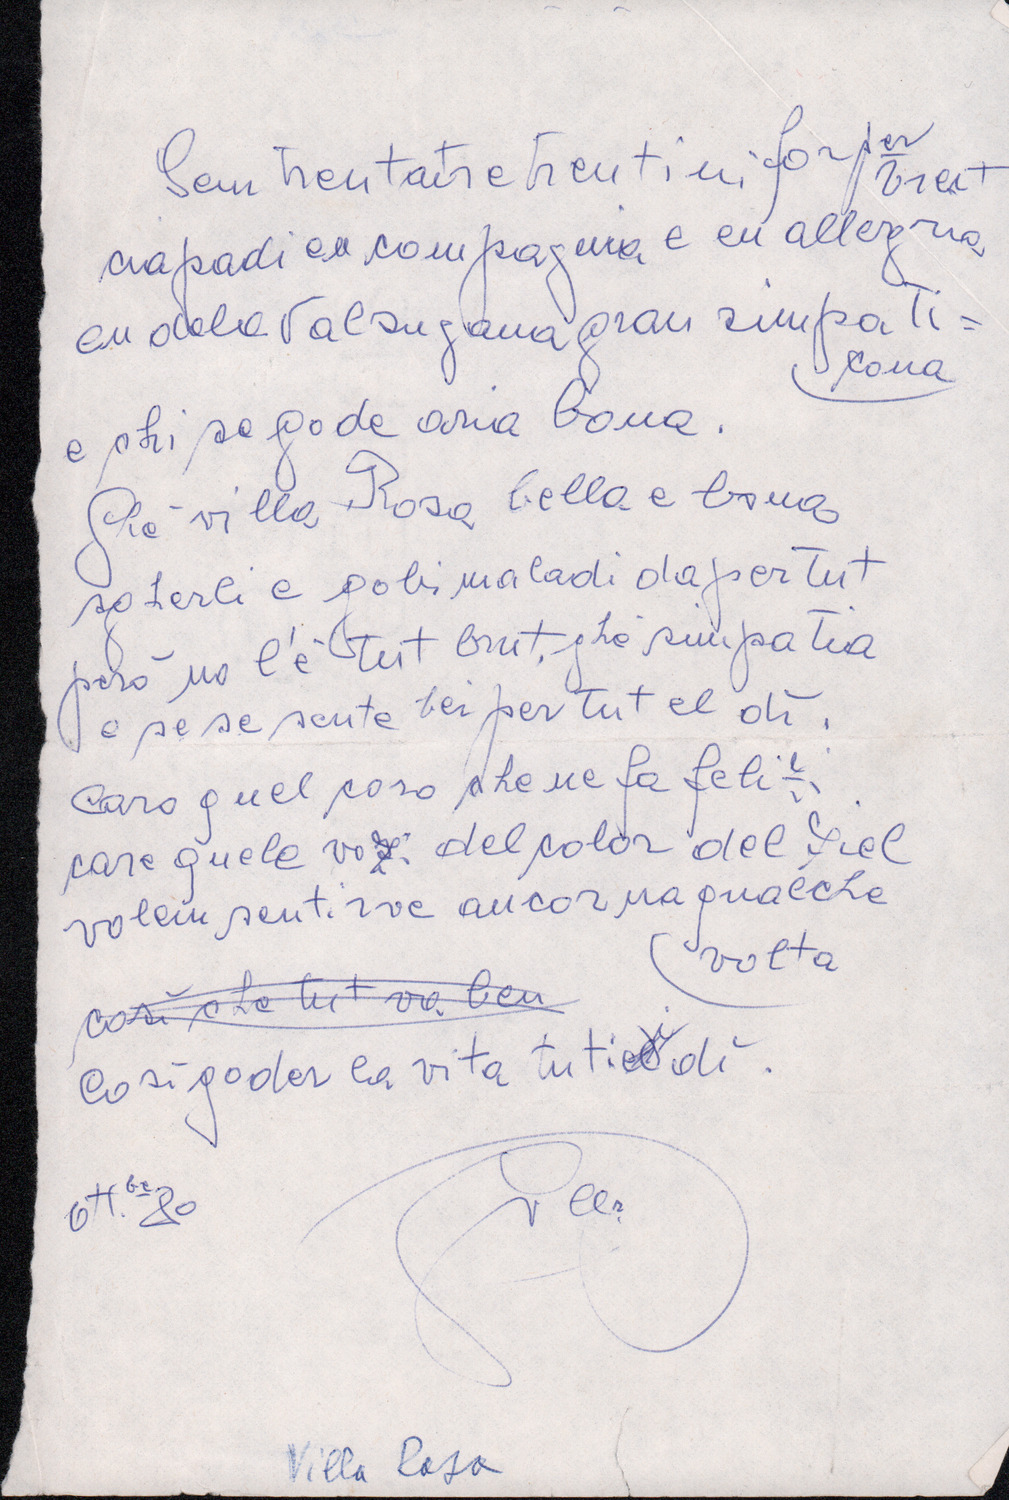 Sem trentatre trentini for per Trent
ciapadi en compagnia e en allegria
en dela Valsugana gran simpati=
cona
e chi se gode aria bona.
Ghè villa Rosa bella e bona
sgherli e gobi maladi dapertut
però no l'è tut brut, ghè simpatia
e se se sente bei per tut el dì.
Caro quel coro che ne fa feli
care quele vozi del color del ziel
volem sentirve ancor na qualche
volta
così che tut va ben
Così goder la vita tuti i dì.
ott.be 80
Villa Rosa